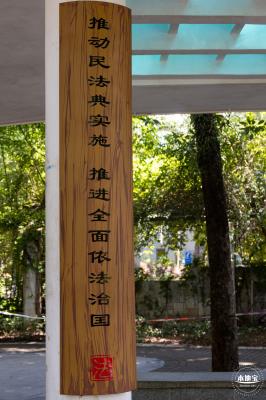 推动民法典实施 推进全面依法治国
法
本地宝